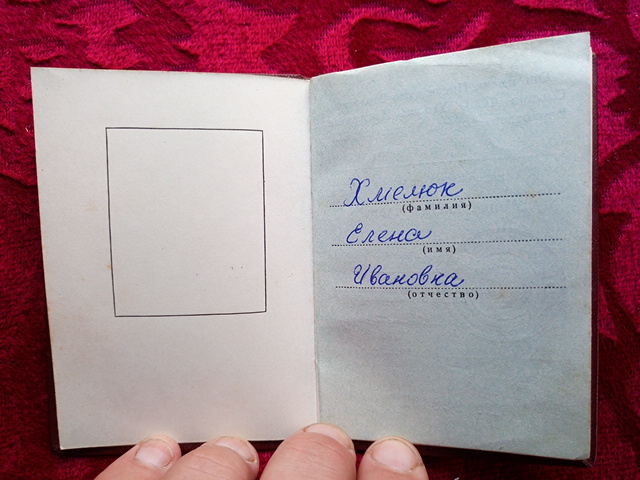 Хмелюк
(фамилия)
Елена
(имя)
Ивановна
(отчество)